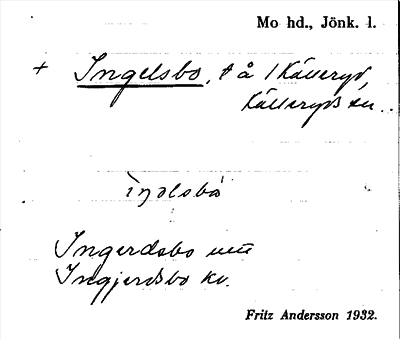 Mo hd., Jönk. l.
+ Ingelsbo, t å 1 Källeryd,
Källeryds sn..
iŋəlsbo
Ingerdsbo
Ingjerdsbo kv.
Fritz Andersson 1932.